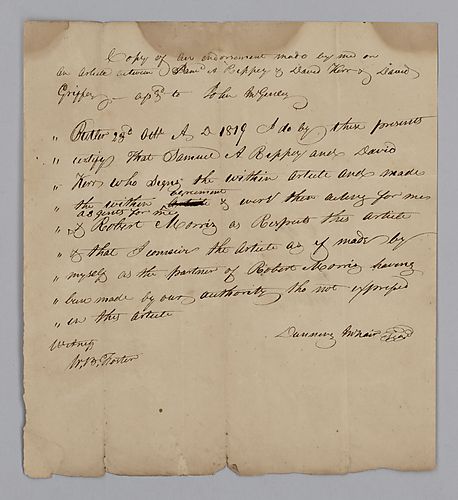 Copy of an endorsement made by me on
an Article between Saml A Rippey & David Kerr & David
to John McGinley
" 28th Octr A D 1819 I do by these presents
" certify that Samuel A Rippey and David
" Kerr who signed the within article and made
" the within Article agreement & were then acting for me
as agents for me
" & Robert Morris as Respects this Article
" & that I consider the Article as if made by
" myself as the partner of Robert Morris having
" been made by our authority tho not expressed
" in this article
Witness
Dunning McNair
W. B. Foster